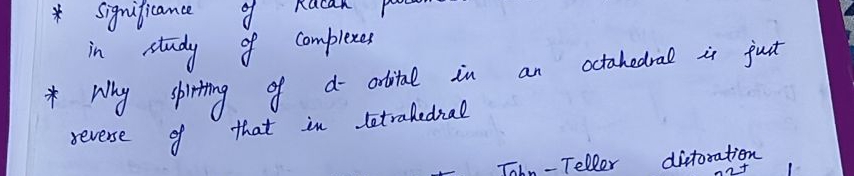 * Significance of Racah
in study of Complexes
* Why splitting of d- orbital in an octahedral is just
reverse of that in tetrahedral
John-Teller distoration